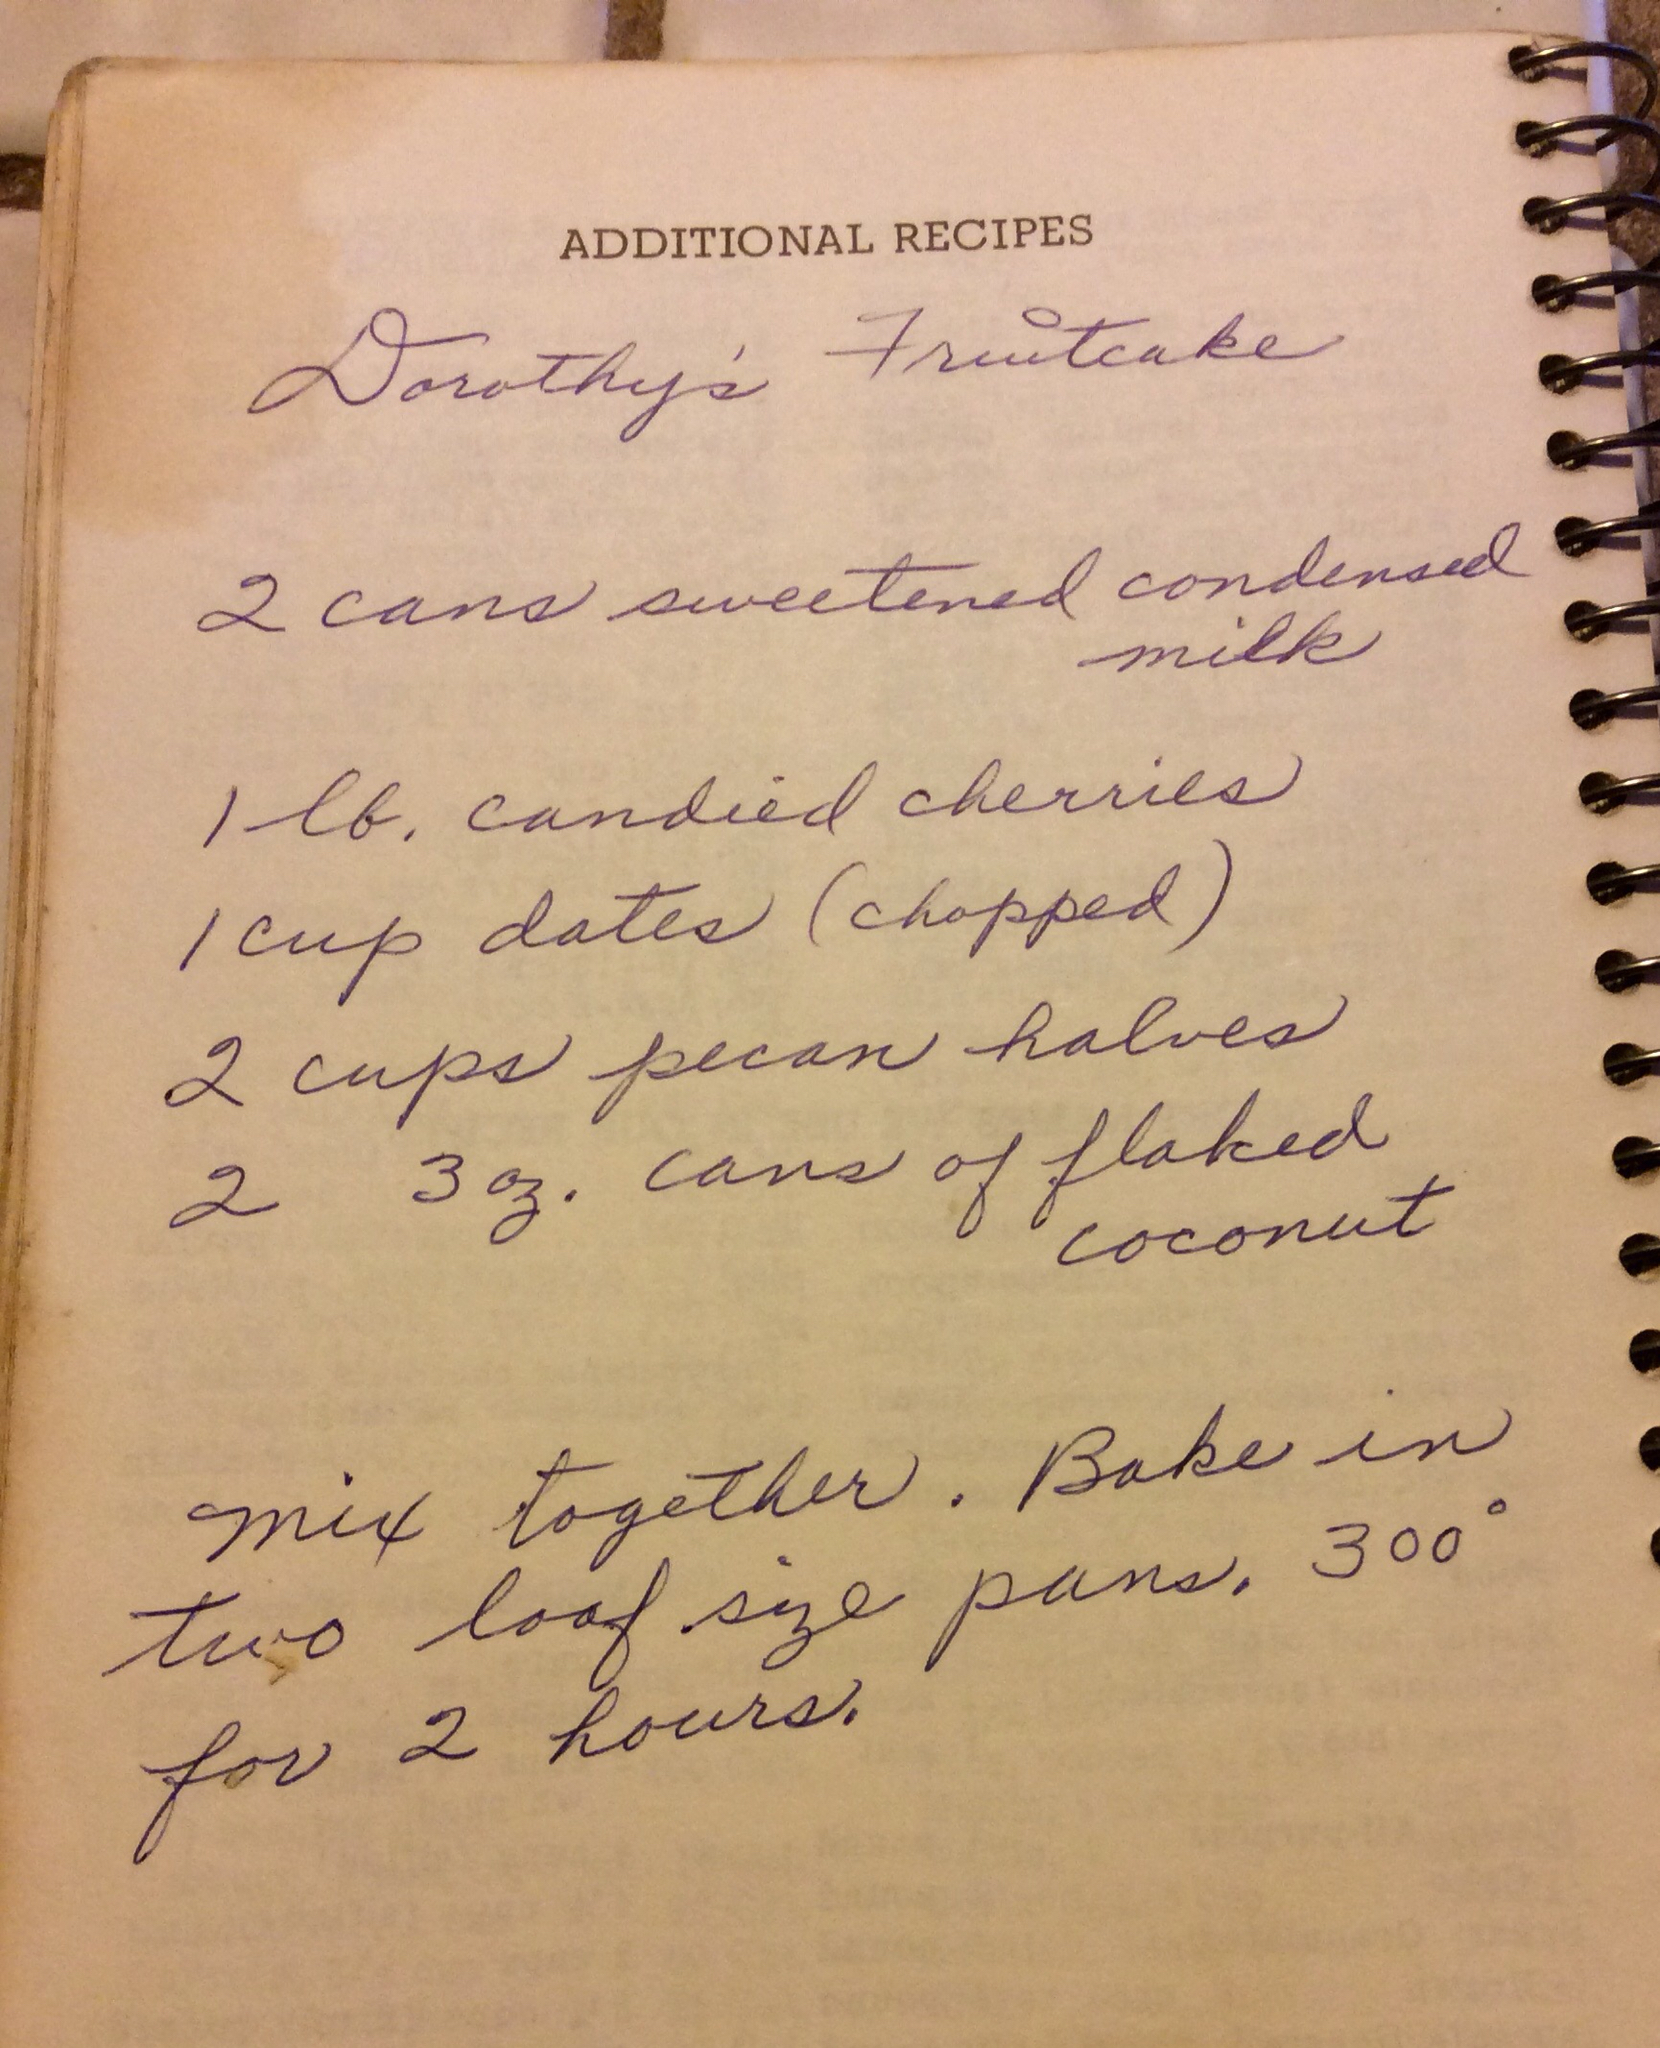 ADDITIONAL RECIPES
Dorothy's Fruitcake
2 cans sweetened condensed
milk
1 lb. candied cherries
1 cup dates (chopped)
2 cups pecan halves
2 3 oz. cans of flaked
coconut
Mix together. Bake in
two loaf size pans. 300°
for 2 hours.